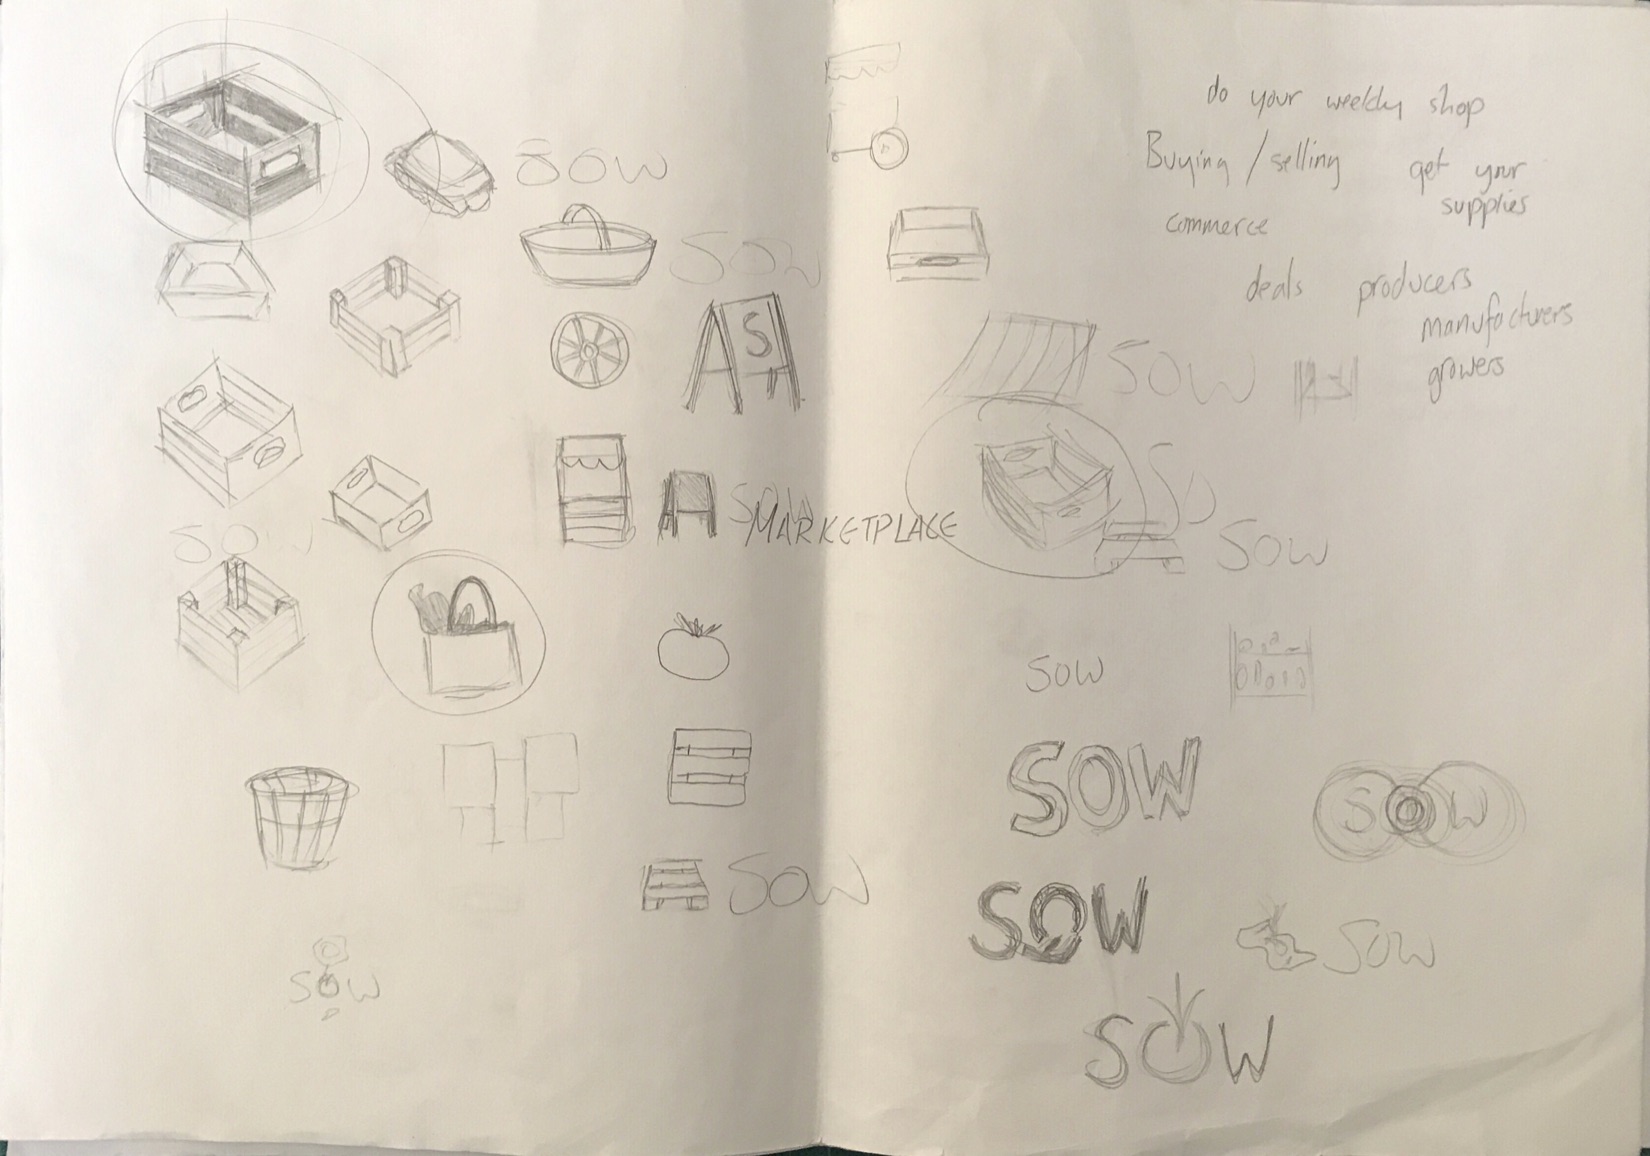 SOW
SOW
S
SOW
MARKETPLACE
SOW
SOW
SOW
do your weekly shop
Buying / selling
get your
supplies
commerce
deals
producers
manufacturers
growers
SOW
SO
SOW
SOW
SOW
SOW
SOW
SOW
SOW